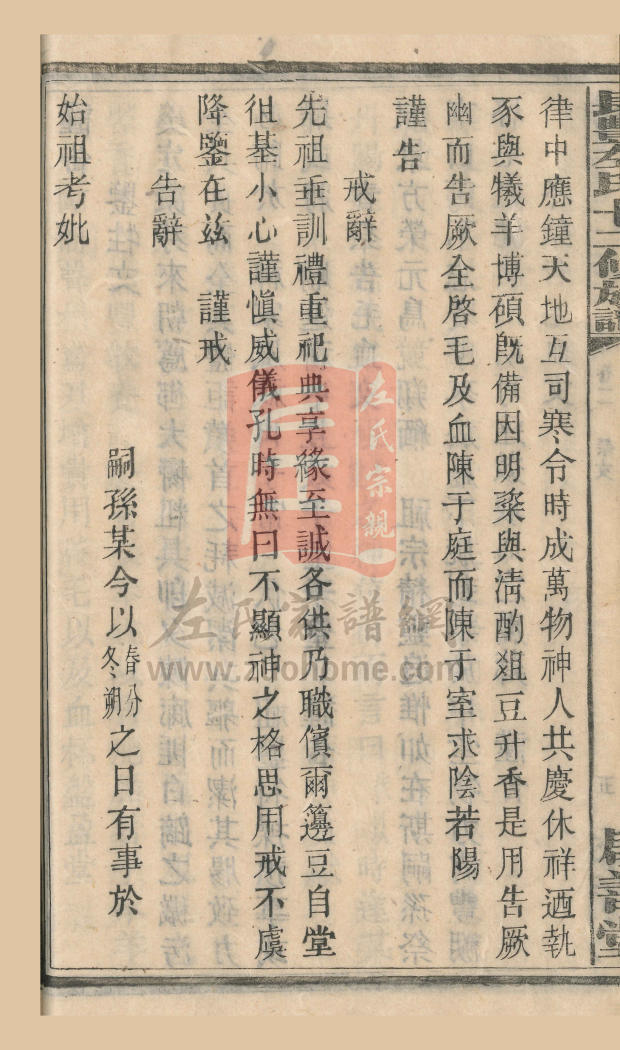 律中應鐘天地互司寒令時成萬物神人共慶休祥迺執
豕與犧羊博碩旣備因明粢與清酌俎豆升香是用告厥
幽而告厥全啓毛及血陳于庭而陳于室求陰若陽
謹告
戒辭
先祖垂訓禮重祀典享緣至誠各供乃職儐爾籩豆自堂
徂基小心謹愼威儀孔時無曰不顯神之格思用戒不虞
降鑒在兹 謹戒
告辭
嗣孫某今以春分冬朔之日有事於
始祖考妣
左氏宗親
左氏宗譜網
www.zuohome.com